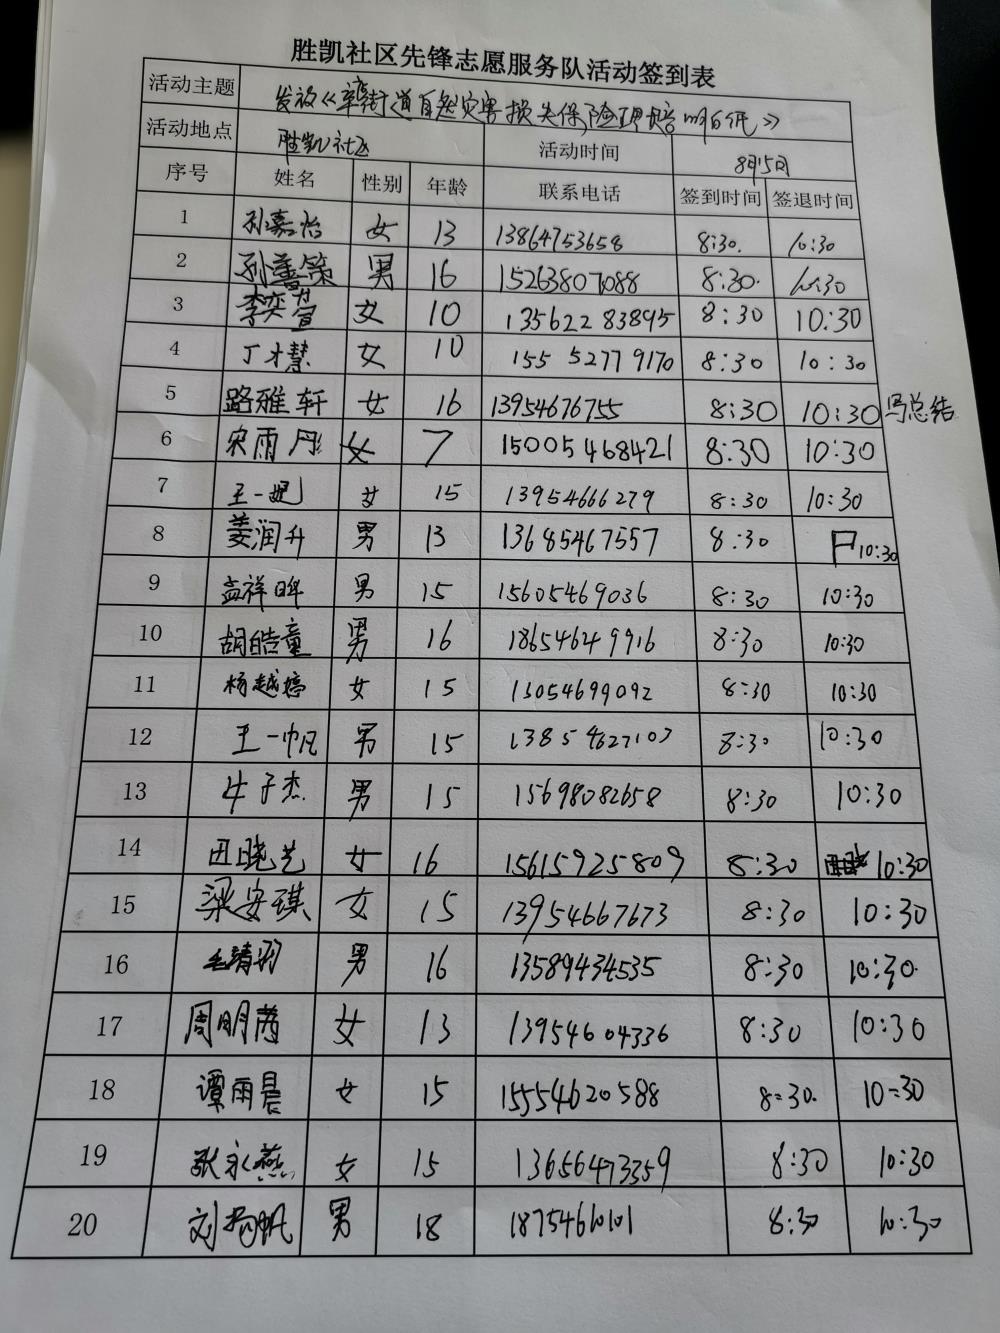 胜凯社区先锋志愿服务队活动签到表
活动主题 发放《辛店街道自然灾害损失保险理赔明白纸》
活动地点 胜凯社区 活动时间 8月15日
序号 姓名 性别 年龄 联系电话 签到时间 签退时间
1 孙嘉怡 女 13 13864753658 8:30. 10:30
2 孙善策 男 16 15263807088 8:30. 10:30
3 李奕萱 女 10 13562283895 8:30 10:30
4 丁才慧 女 10 155 5277 9170 8:30 10:30
5 路雅轩 女 16 13954676755 8:30 10:30 写总结
6 宋雨彤 女 7 15005468421 8:30 10:30
7 王一妃 女 15 13954666279 8:30 10:30
8 姜润升 男 13 13685467557 8:30 10:30
9 孟祥晖 男 15 15605469036 8:30 10:30
10 胡皓童 男 16 18654649916 8:30 10:30
11 杨越婷 女 15 13054699092 8:30 10:30
12 王一帆 男 15 13854627107 8:30 10:30
13 牛子杰 男 15 15698082658 8:30 10:30
14 田晓艺 女 16 15615925809 8:30 10:30
15 梁安琪 女 15 13954667673 8:30 10:30
16 男 16 13589434535 8:30 10:30.
17 周明茜 女 13 13954604336 8:30 10:30
18 谭雨晨 女 15 15554620588 8:30. 10:30
19 耿永燕 女 15 13656473359 8:30 10:30
20 刘扬帆 男 18 18754610101 8:30 10:30